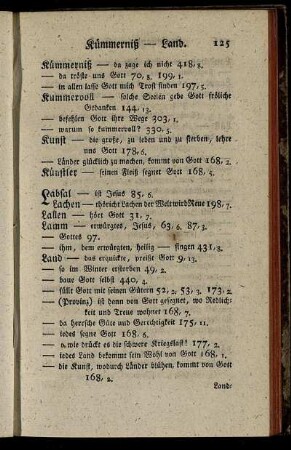 Kümmerniß — Land. 125
Kümmerniß — da zage ich nicht 418, 8.
— da tröste uns Gott 70, 8. 199, 1.
— in allen lasse Gott mich Trost finden 197, 5.
Kummervoll — solche Seelen gebe Gott fröliche
Gedanken 144, 13.
— befehlen Gott ihre Wege 303, 1.
— warum so kummervoll? 330, 5.
Kunst — die große, zu leben und zu sterben, lehre
uns Gott 178, 6.
— Länder glücklich zu machen, kommt von Gott 168, 2.
Künstler — seinen Fleiß segnet Gott 168, 4.
Labsal — ist Jesus 85, 6.
Lachen — thöricht Lachen der Welt wird Reue 198, 7.
Lallen — hört Gott 31, 7.
Lamm — erwürgtes, Jesus, 63, 6. 87, 3.
— Gottes 97.
— ihm, dem erwürgten, heilig — singen 431, 8.
Land — das erquickte, preißt Gott 9, 13.
— so im Winter erstorben 49, 2.
— baue Gott selbst 440, 4.
— füllt Gott mit seinen Gütern 52, 2. 53, 3. 173, 2.
— (Provinz) ist denn von Gott gesegnet, wo Redlich-
keit und Treue wohnet 168, 7.
— da herrsche Güte und Gerechtigkeit 175, 11.
— iedes segne Gott 168, 6.
— o, wie drückt es die schwere Kriegslast! 177, 2.
— iedes Land bekommt sein Wohl von Gott 168, 1.
— die Kunst, wodurch Länder blühen, kommt von Gott
168, 2.
Land-